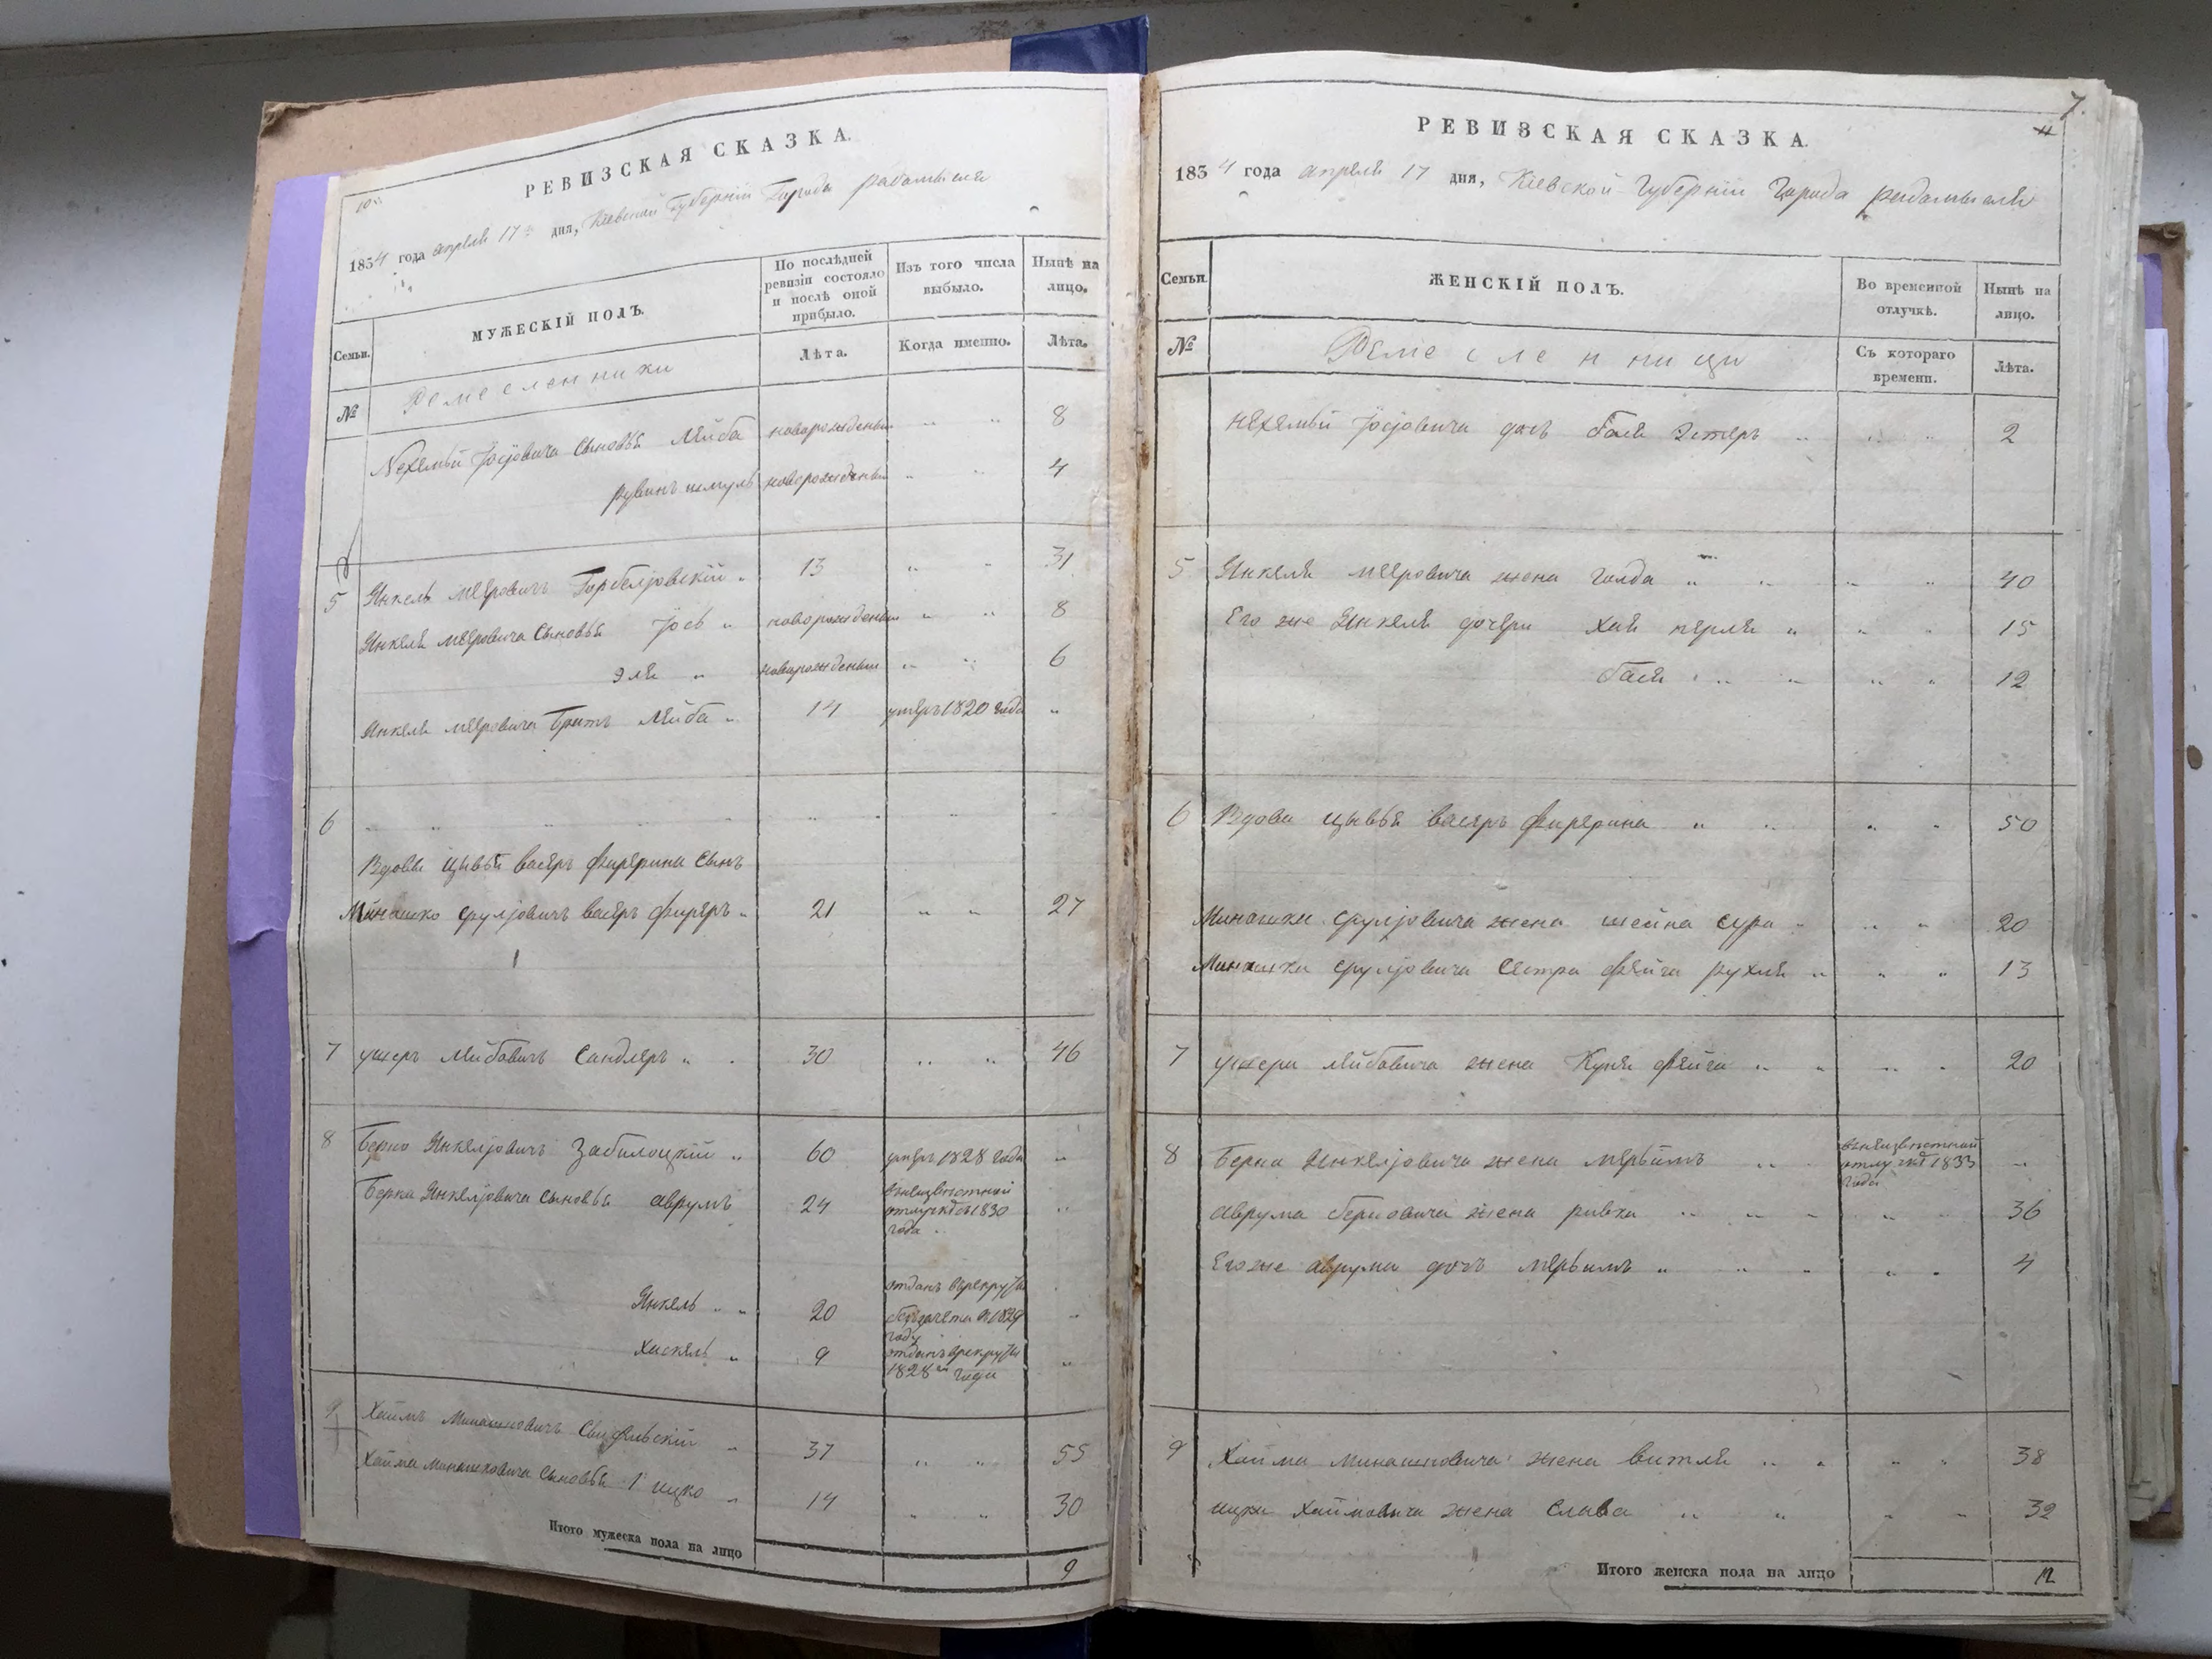 РЕВИЗСКАЯ СКАЗКА.
1834 года апреля 17 дня, Кіевской Губерніи Города радомысля
Семьи.
МУЖЕСКІЙ ПОЛЪ.
По послѣдней ревизіи состояло и послѣ оной прибыло.
Изъ того числа выбыло.
Нынѣ на лицо.
№
Ремесленники
Лѣта.
Когда именно.
Лѣта.
Нехемьи Іосіовича сыновья Лейба новорожденый " " 8
рувинъ шмуль новорожденый " " 4
5 Янкель Меяровичъ Горбелювскій " 13 " " 31
Янкеля меяровича сыновья Іось " новорожденый " " 8
Эля " новорожденый " " 6
Янкеля меяровича братъ Лейба " 14 умеръ 1820 года "
6
Вдовы цывьи васеръ фирерина сынъ
Минашко сруліовичъ васеръ фиреръ " 21 " " 27
7 ушеръ лейбовичъ Сандлеръ " " 30 " " 46
8 Берко Янкеліовичъ Забилоцкій " 60 умеръ 1828 года "
Берка Янкеліовича сыновья аврумъ 24 в неизвестной отлучкѣ съ 1830 года "
Янкель " " 20 отданъ в рекруты 1829 году "
Хаскель " 9 отданъ в рекруты 1828 года "
9 Хаимъ Минашковичъ " 37 " " 55
Хаима минашковича сыновья 1 ицко " 14 " " 30
Итого мужеска пола на лицо 9
7.
РЕВИЗСКАЯ СКАЗКА.
1834 года апреля 17 дня, Кіевской Губерніи Города радомысля
Семьи.
ЖЕНСКІЙ ПОЛЪ.
Во временной отлучкѣ.
Нынѣ на лицо.
№
Ремесленници
Съ котораго времени.
Лѣта.
нехемьи Іосіовича дочь бася Эстеръ " " " 2
5 Янкеля меяровича жена голда " " " " 40
Его же Янкеля дочери хая перля " " " 15
бася " " " " 12
6 Вдова цывья васеръ фирерина " " " " 50
Минашки сруліовича жена шейна сура " " " 20
Минашки сруліовича сестра фейга рухля " " " 13
7 ушера лейбовича жена Куня фейга " " " " 20
8 Берка Янкеліовича жена мерьямъ " " в неизвестной отлучкѣ 1833 года "
аврума берковича жена ривка " " " " " 36
Его же аврума дочь мерьямъ " " " " " 4
9 Хаима минашковича жена витля " " " " 38
ицка хаимовича жена слава " " " " 32
Итого женска пола на лицо 12